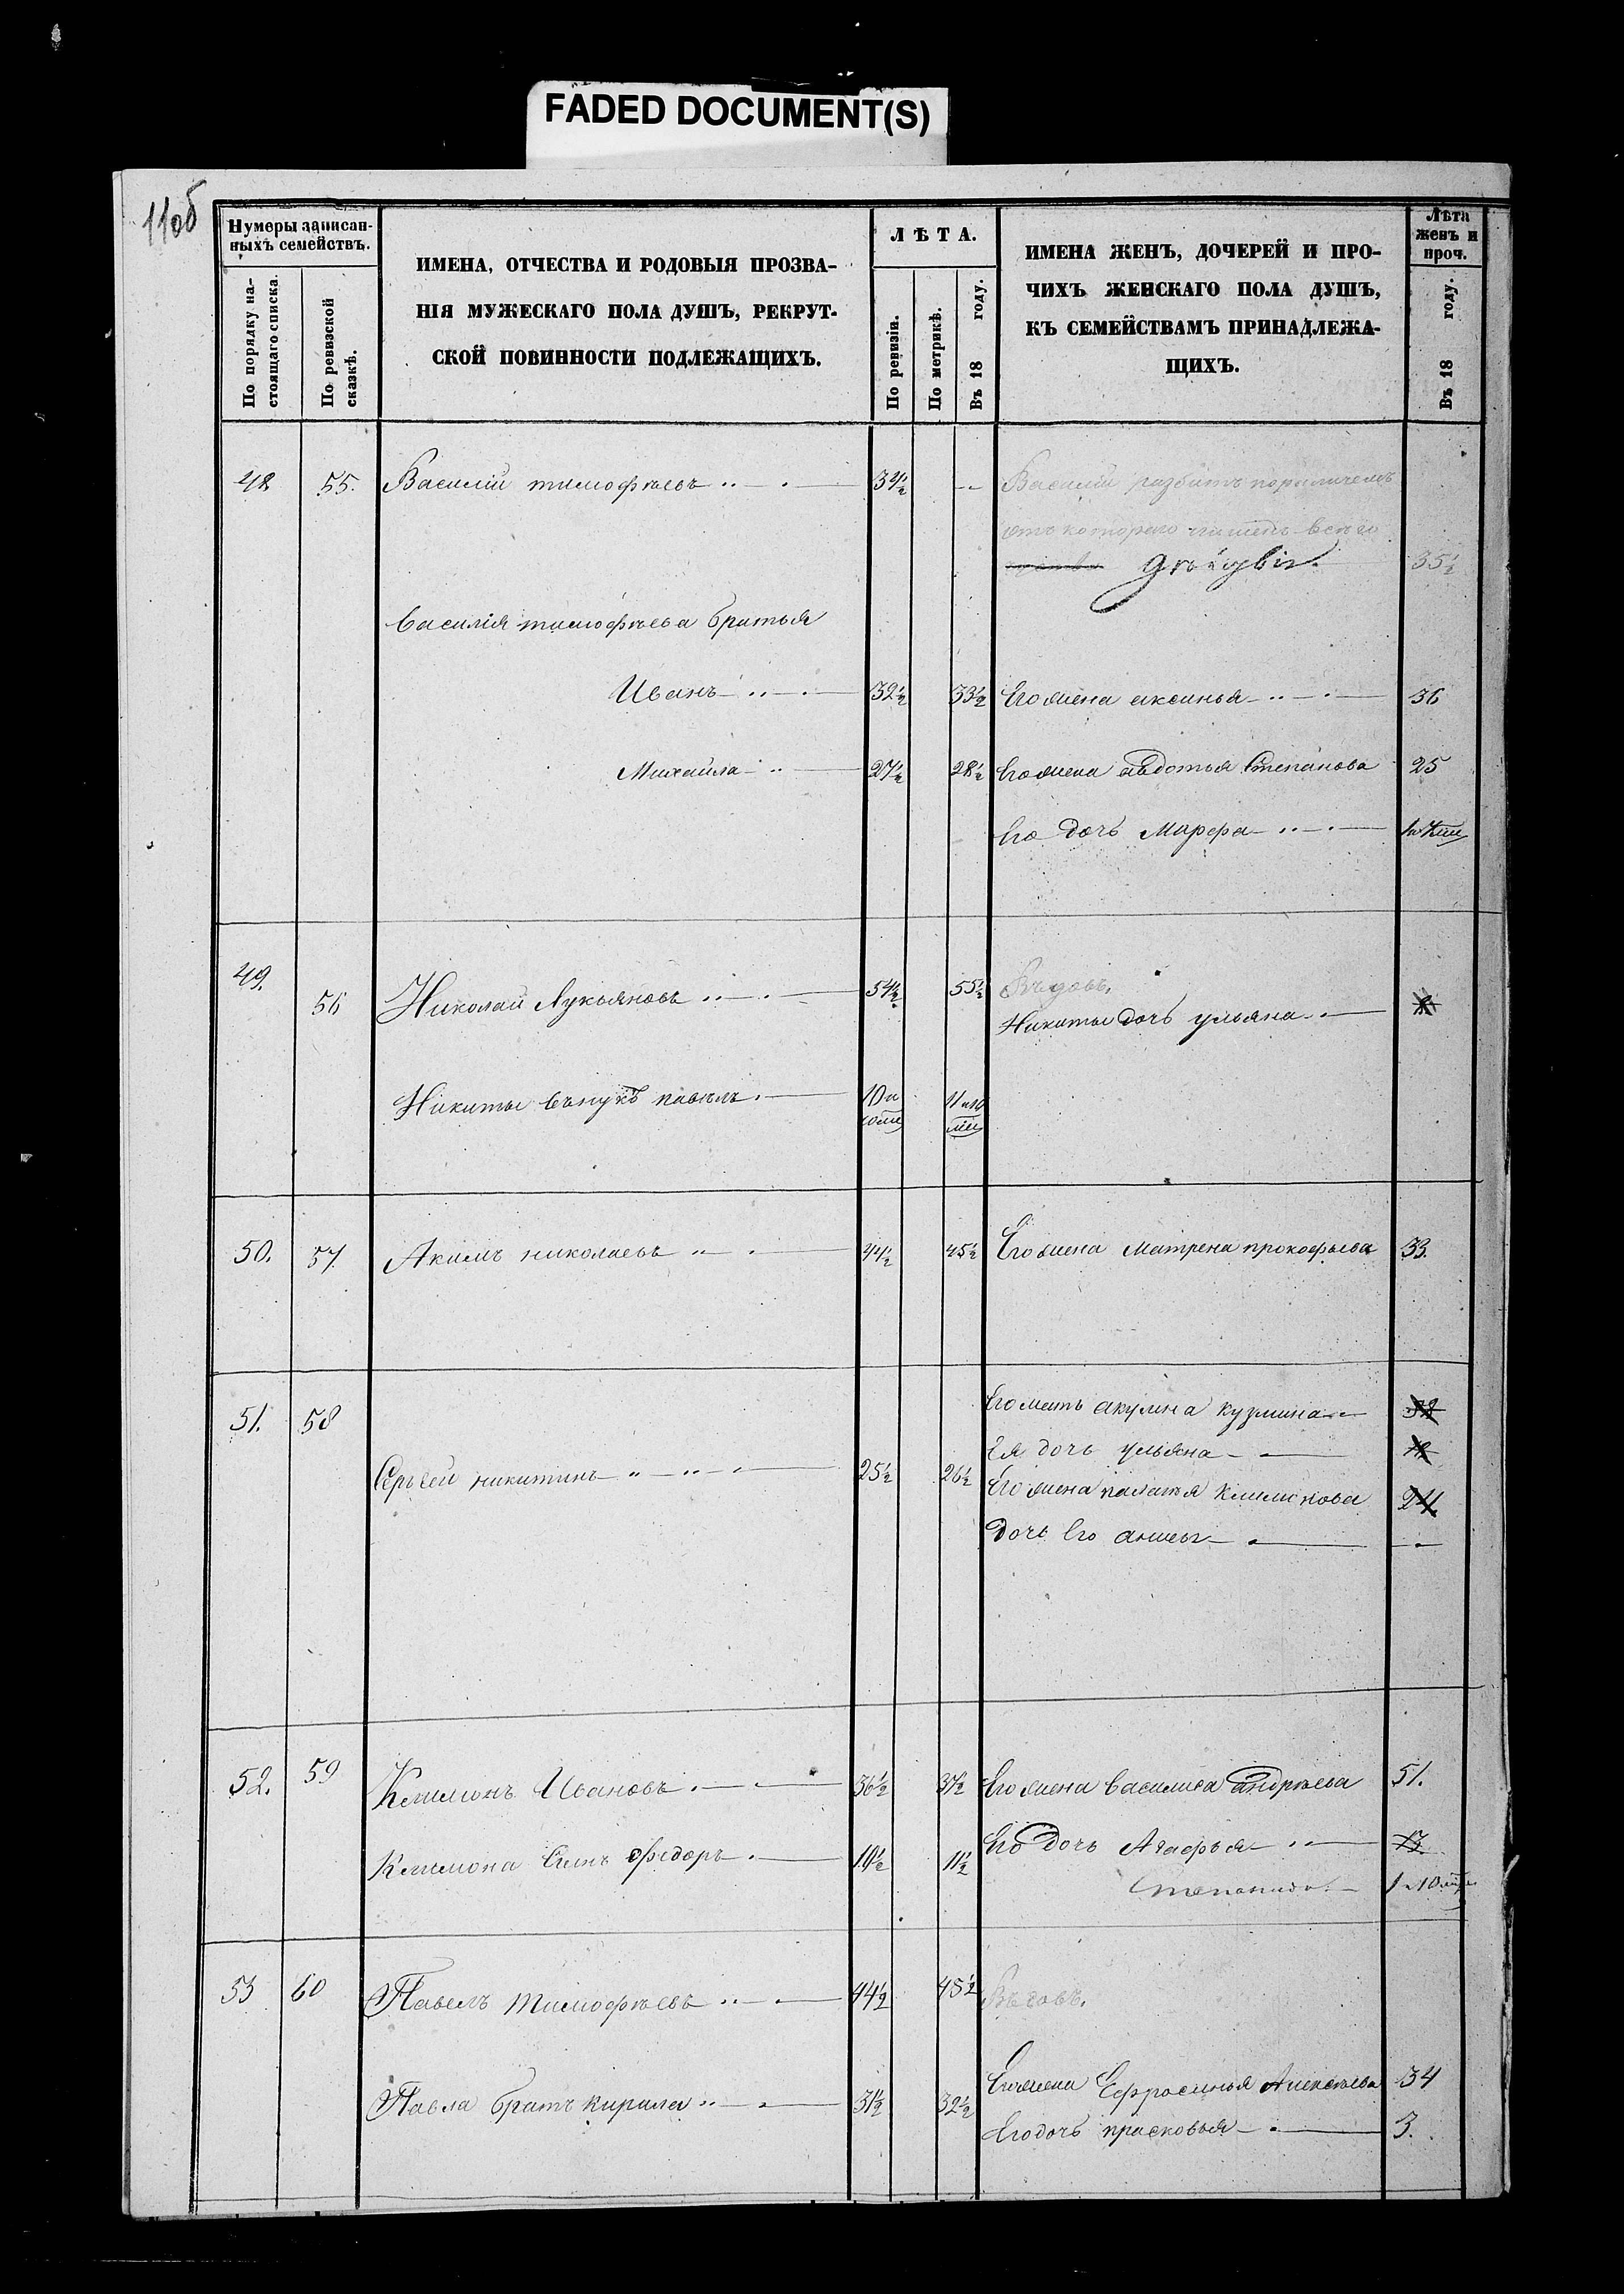 FADED DOCUMENT(S)
11об
Нумеры записан-
ныхъ семействъ.
По порядку на-
стоящаго списка.
По ревизской
сказкѣ.
ИМЕНА, ОТЧЕСТВА И РОДОВЫЯ ПРОЗВА-
НІЯ МУЖЕСКАГО ПОЛА ДУШЪ, РЕКРУТ-
СКОЙ ПОВИННОСТИ ПОДЛЕЖАЩИХЪ.
ЛѢТА.
По ревизіи.
По метрикѣ.
Въ 18 году.
ИМЕНА ЖЕНЪ, ДОЧЕРЕЙ И ПРО-
ЧИХЪ ЖЕНСКАГО ПОЛА ДУШЪ,
КЪ СЕМЕЙСТВАМЪ ПРИНАДЛЕЖА-
ЩИХЪ.
Лѣта
женъ и
проч.
Въ 18 году.
48 55. Василій тимофѣевъ 34½ Василій разбитъ параличемъ
отъ котораго
35½
Василія тимофѣева братья
Иванъ 32½ 33½ Его жена аксинья 36
Михайла 27½ 28½ Его жена авдотья Степанова 25
Его дочь Марфа
49. 56 Николай Лукьяновъ 54½ 55½ Вдовъ.
Никиты дочь ульяна
Никиты внукъ павелъ 10 и 11 и 10
50. 57. Акимъ николаевъ 44½ 45½ Его жена Матрена прокофьева 33.
51. 58 Его мать акулина кузмина
Ея дочь ульяна
Сергей никитинъ 25½ 26½ Его жена палагья климонова 24
Дочь Его
52. 59 Климонъ Ивановъ 36½ 37½ Его жена василиса андрѣева 51.
Климона Сынъ Федоръ 10½ 11½ Его дочь Агафья 13
Степанида 1 и 10
53 60 Павелъ тимофѣевъ 44½ 45½ Вдовъ.
Павла братъ кирила 31½ 32½ Его жена Ефросинья Алексѣева 34
Его дочь прасковья 3.